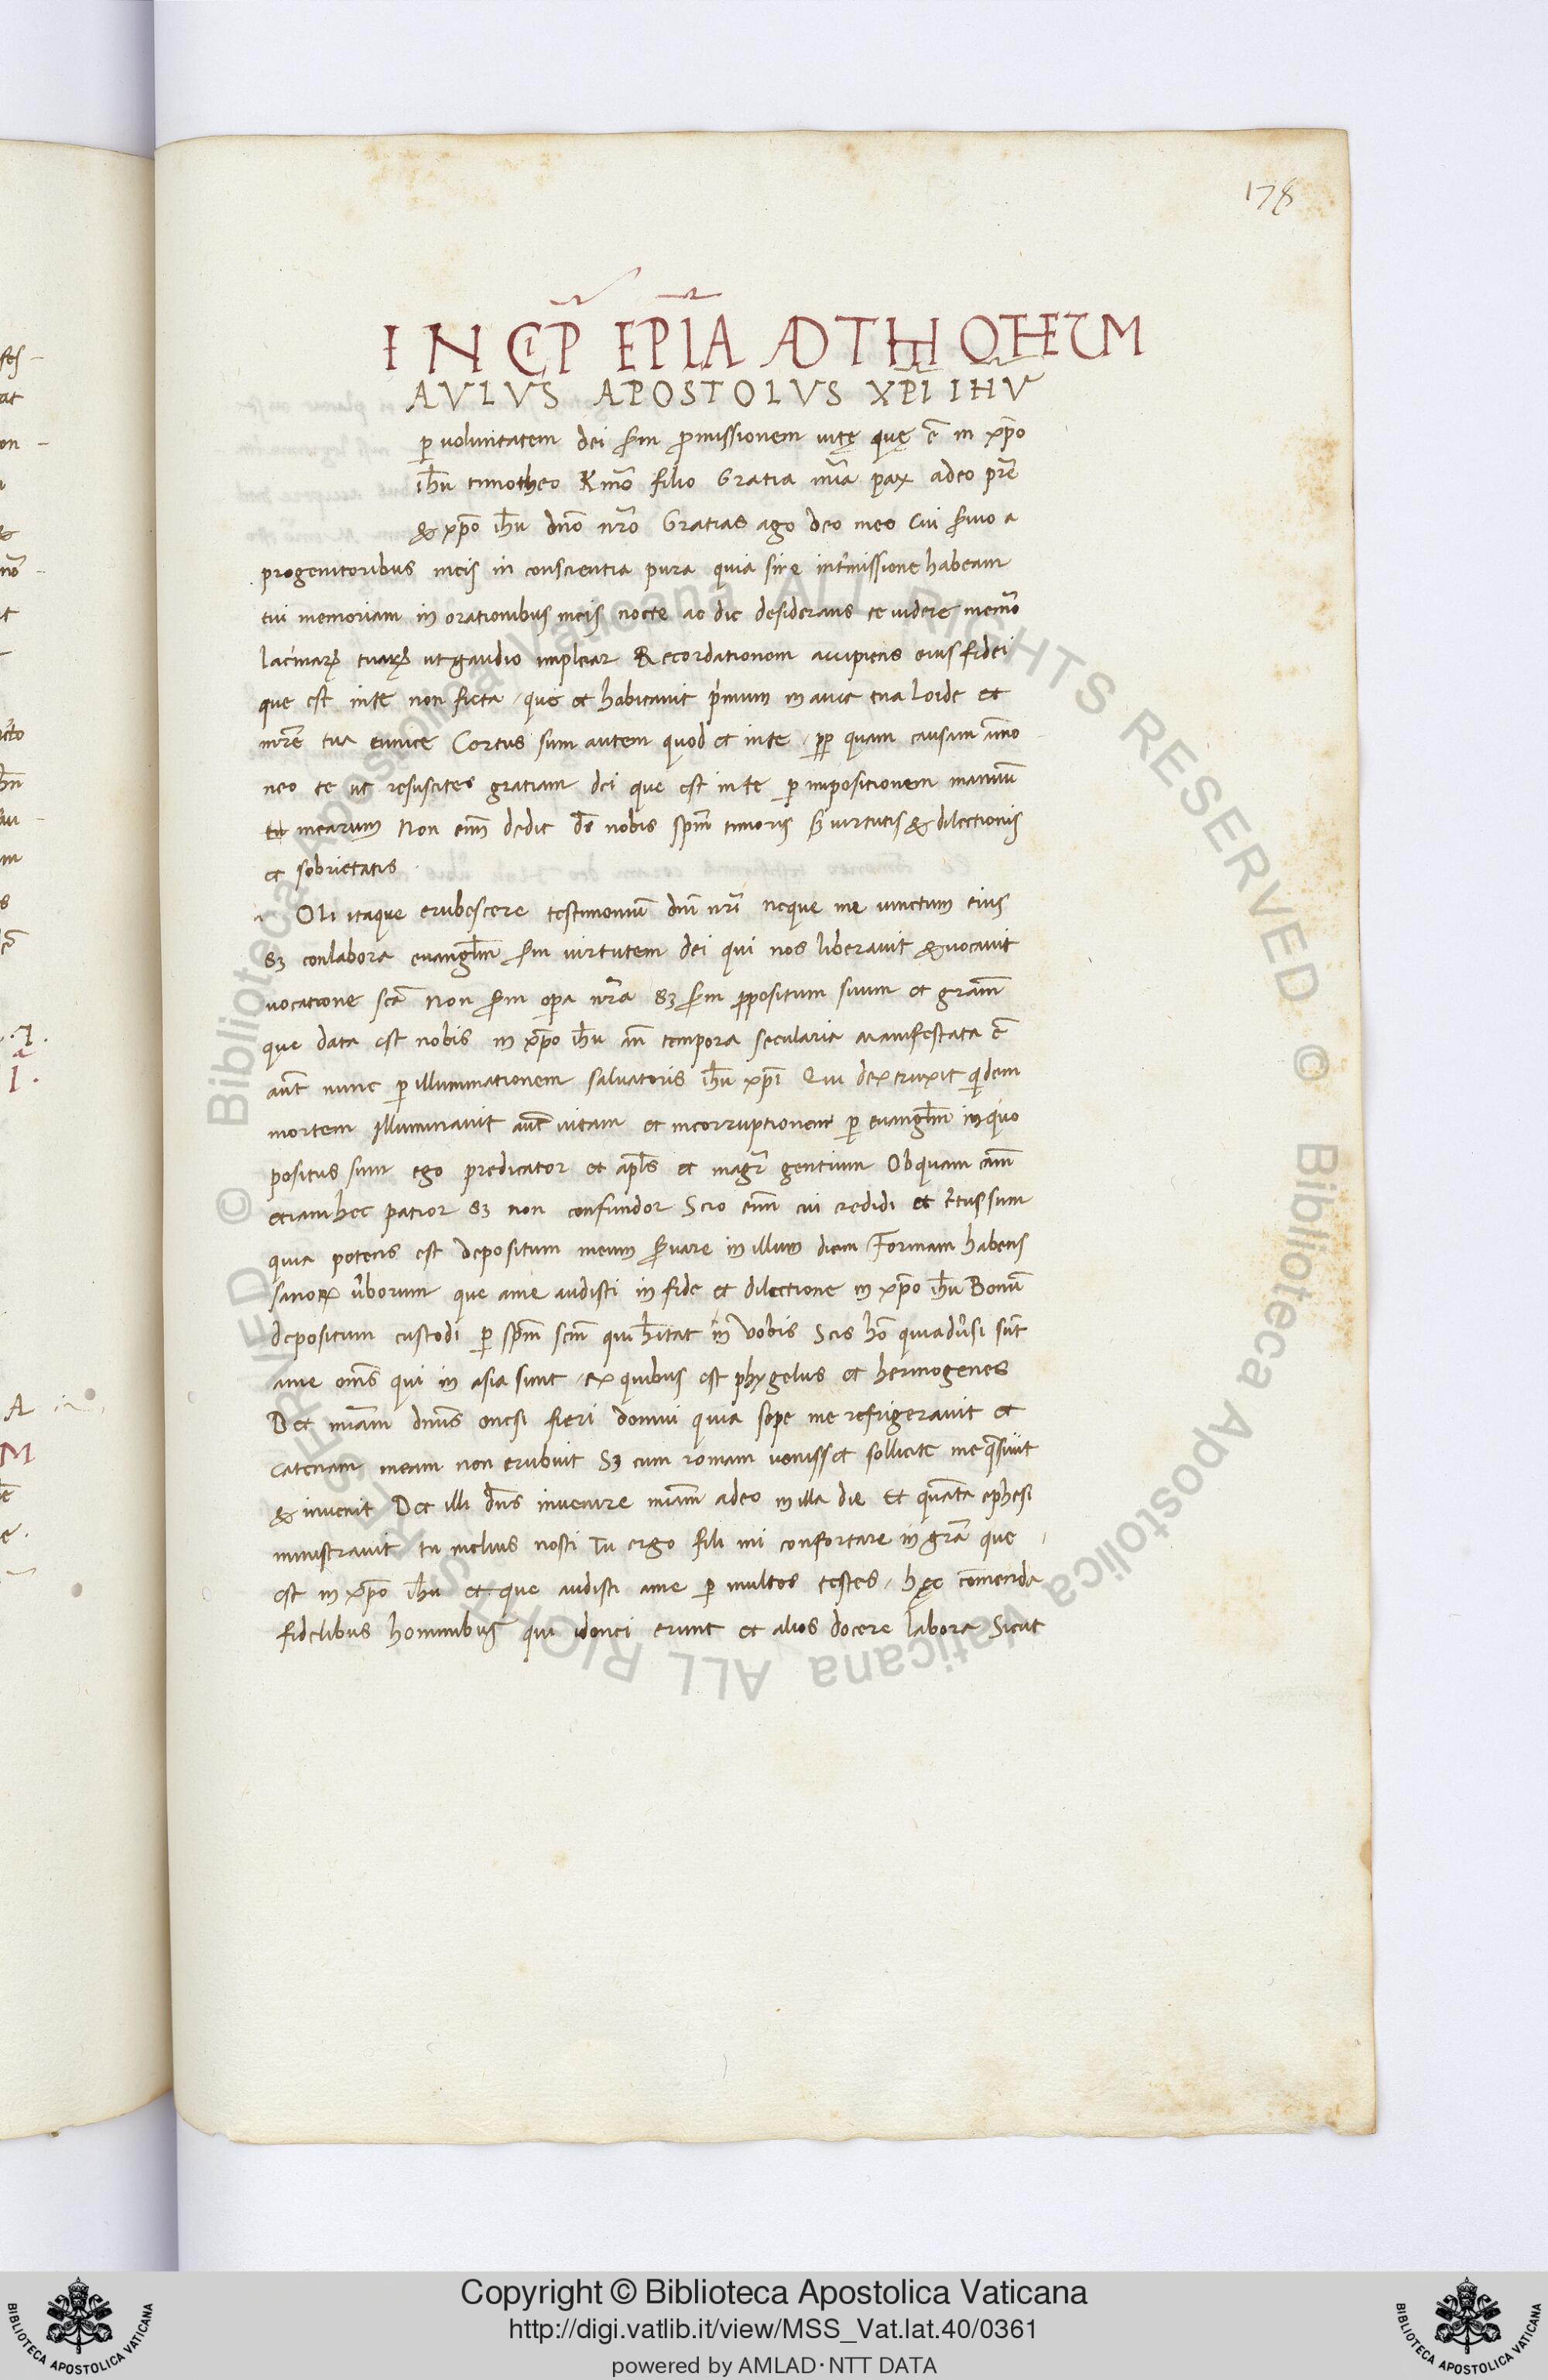 178
INCIP̃ EPĪLA AD THIMOTHEUM
AVLVS APOSTOLVS XP̄I IHV̄
ꝑ voluntatem dei s̄m ꝓmissionem uitę quę ē in xp̄o
ih̄u timotheo Kmõ filio Gratia mīa pax adeo pr̄e
& xp̄o ih̄u dn̄o nr̄o Gratias ago deo meo cui s̃uio a
progenitoribus meis in conscientia pura quia sine int̃missione habeam
tui memoriam in orationibus meis nocte ac die desiderans te uidere memõr
lac̃imaꝝ tuaꝝ ut gaudio implear Recordationem accipiens eius fidei
que est inte non ficta, que et habitauit p̃imum in auia tua loide et
mr̄e tua eunice Certus sum autem quod et inte, ꝓp̃ quam causam am̄o
neo te ut resuscites gratiam dei que est in te ꝑ impositionem manuū
mearum Non enī dedit ds̄ nobis sp̄m timoris s̃ uirtutis & dilectionis
et sobrietatis
n OLi itaque erubescere testimoniū dn̄i nr̄i neque me uinctum eius
sꝫ conlabora euangl̄m s̄m uirtutem dei qui nos liberauit & uocauit
uocatione sc̄a Non s̄m oꝑa nr̄a sꝫ s̄m ꝓpositum suum et grām
que data est nobis in xp̄o ih̄u an̄ tempora secularia manifestata ē
aūt nunc ꝑ illuminationem saluatoris ih̄u xp̄i Qui dextruxit q̇dem
mortem illuminauit aūt uitam et incorruptionem ꝑ euangl̄m inquo
positus sum ego predicator et apl̄s et magr̃ gentium Obquam cām
etiam hec patior sꝫ non confundor Scio enī cui credidi et c̃tus sum
quia potens est depositum meum s̃uare in illum diem Formam habens
sanoꝝ ũborum que ame audisti in fide et dilectione in xp̄o ih̄u Bonū
depositum custodi ꝑ sp̄m scm̄ qui h̄itat in uobis Scis hoc̄ quiad̃usi sūt
ame oms̄ qui in asia sunt, ex quibus est phygelus et hermogenes
Det miām dn̄us onesi fieri domui quia sepe me refrigerauit et
catenam meam non erubuit Sꝫ cum romam uenisset sollicite me q̄siuit
& inuenit Det illi dn̄s inuenire miām adeo in illa die Et quāta ephesi
ministrauit tu melius nosti Tu ergo fili mi confortare in grā que
est in xp̄o ih̄u et que audisti ame ꝑ multos testes, hęc cōmenda
fidelibus hominibus qui idonei erunt et alios docere labora Sicut
Copyright © Biblioteca Apostolica Vaticana
http://digi.vatlib.it/view/MSS_Vat.lat.40/0361
powered by AMLAD·NTT DATA
BIBLIOTECA APOSTOLICA VATICANA
BIBLIOTECA APOSTOLICA VATICANA
© Biblioteca Apostolica Vaticana ALL RIGHTS RESERVED © Biblioteca Apostolica Vaticana ALL RIGHTS RESERVED